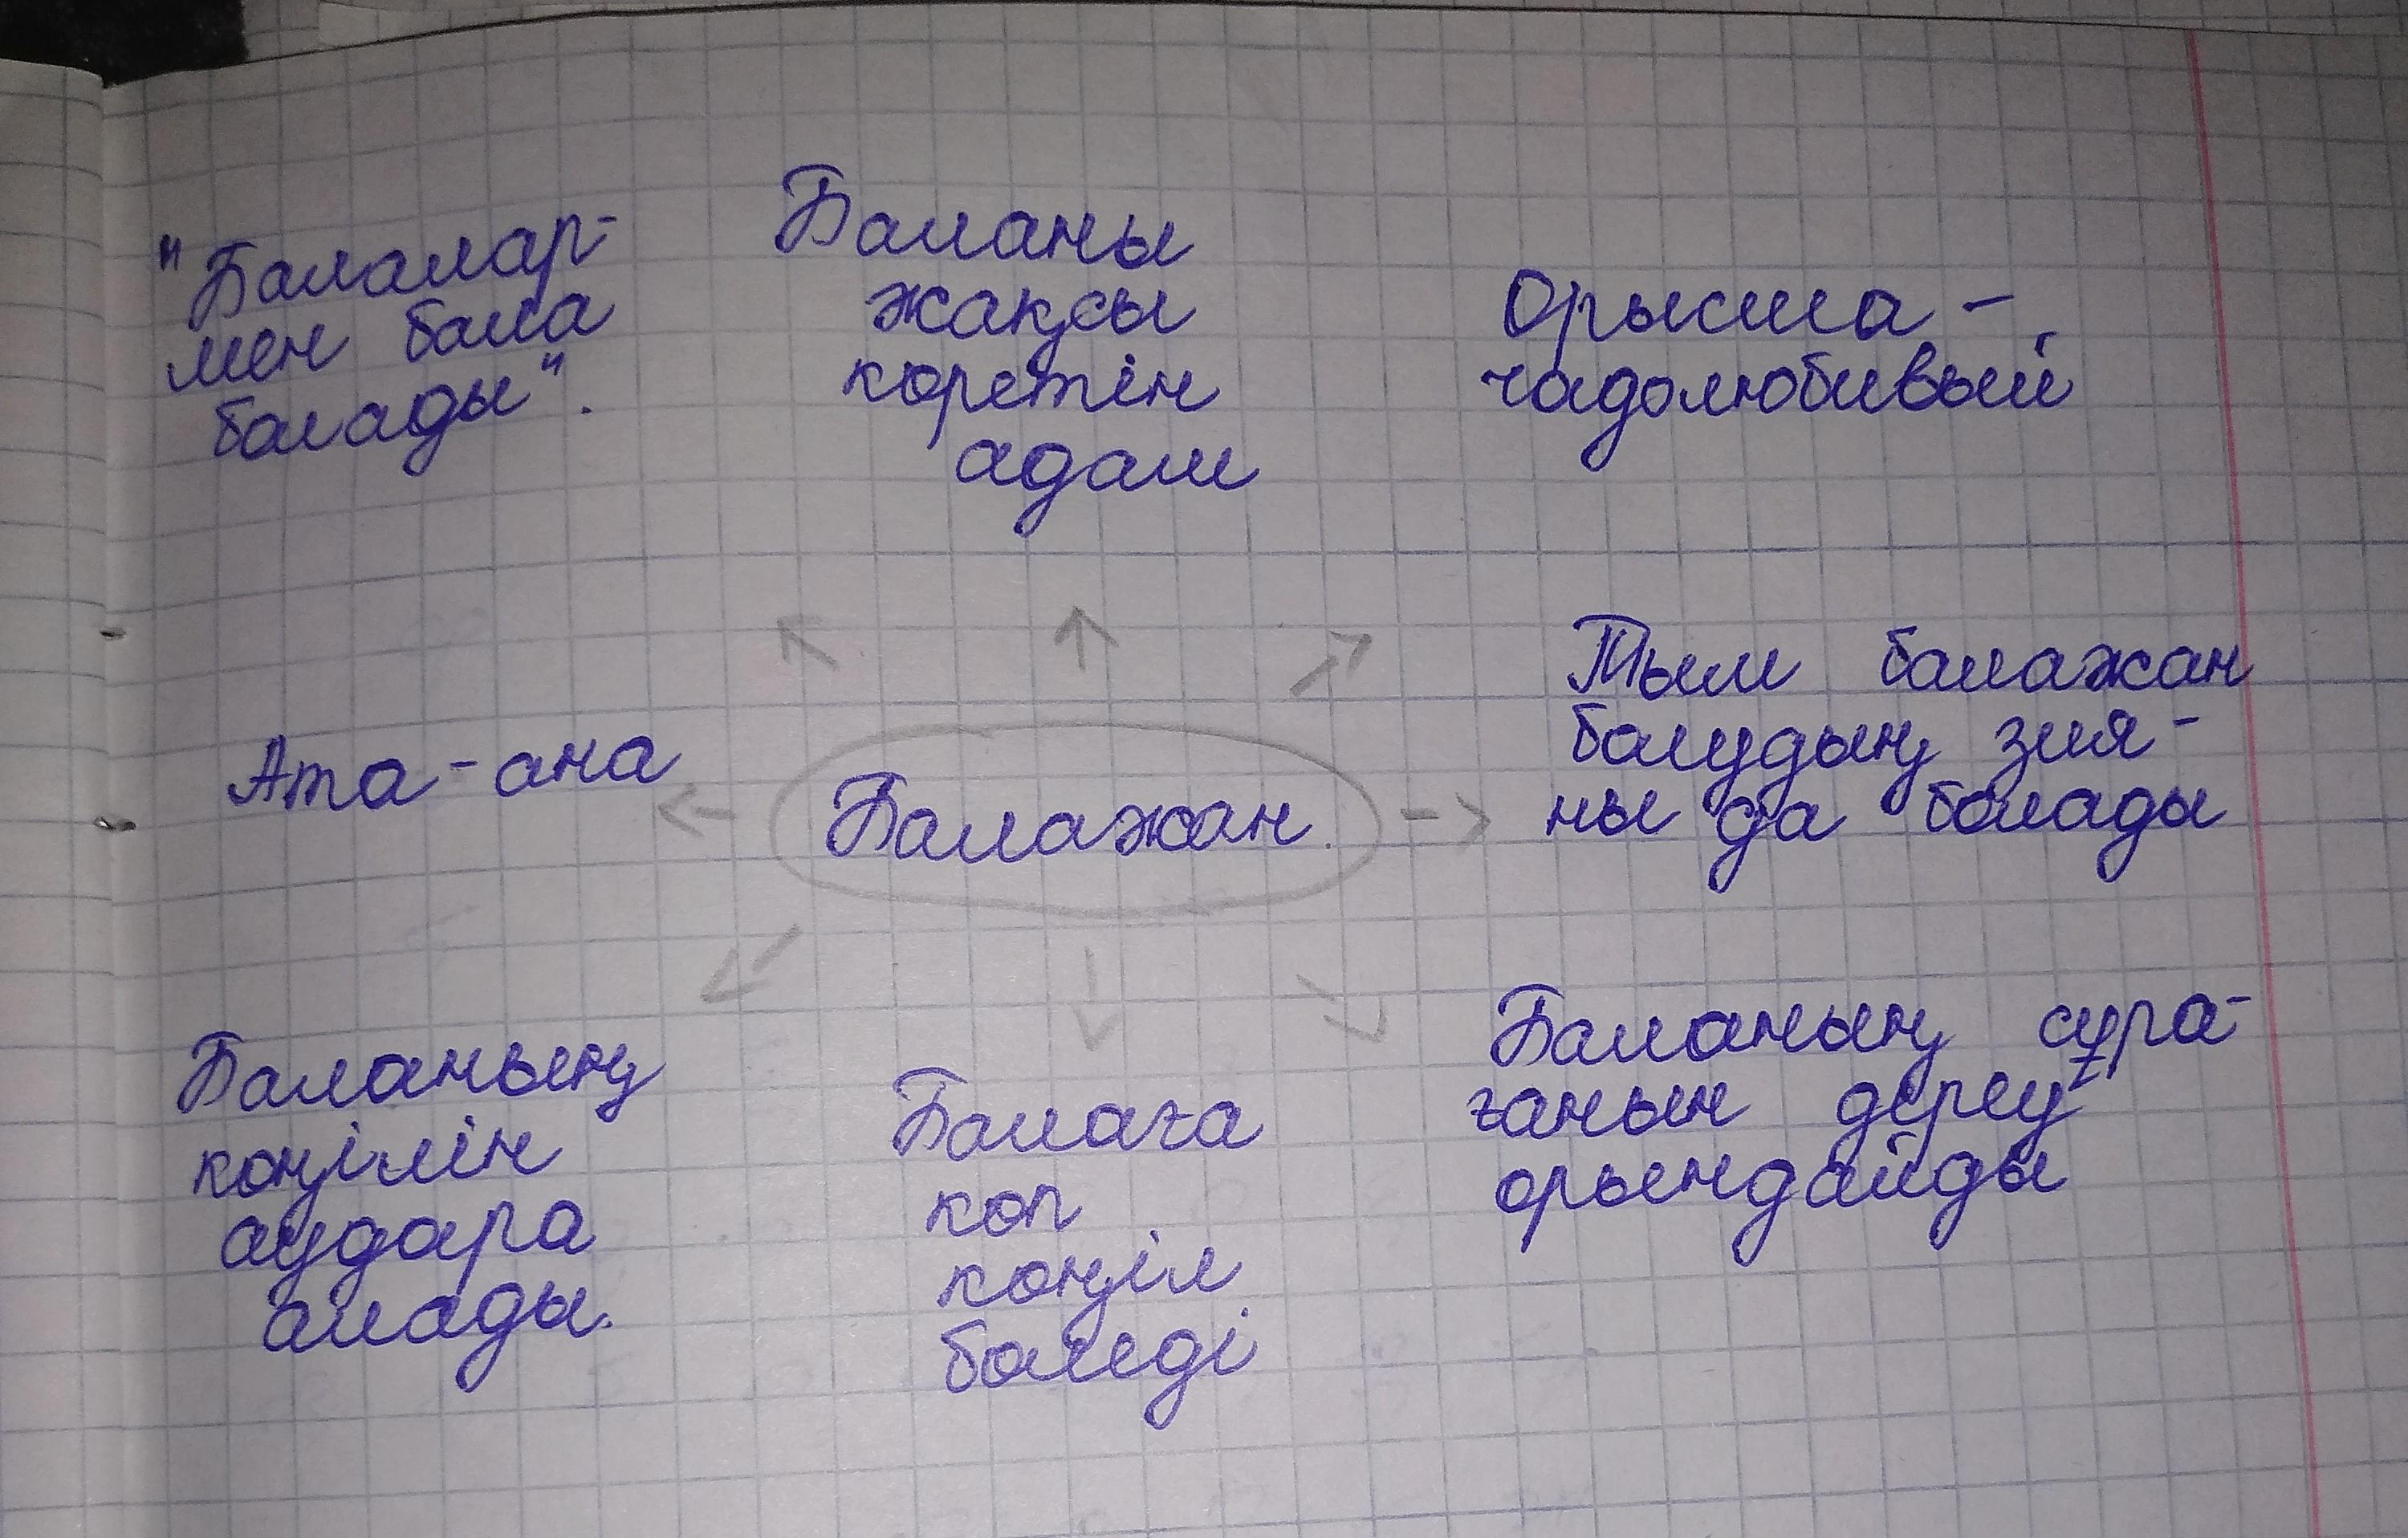 "Балалар-
мен бала
болады".
Баланы
жақсы
көретін
адам
Орысша -
чадолюбивый
Ата-ана
Балажан.
Тым балажан
болудың зия-
ны да болады
Баланың
көңілін
аудара
алады.
Балаға
көп
көңіл
бөледі.
Баланың сұра-
ғанын дереу
орындайды